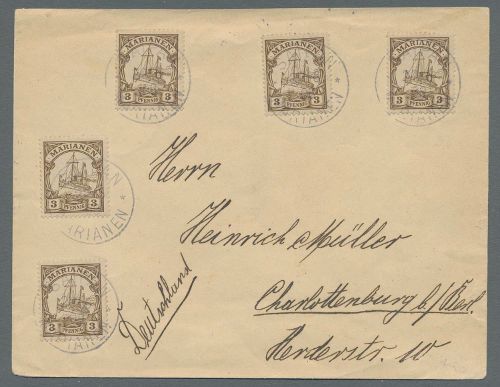 MARIANEN
3 PFENNIG 3
MARIANEN
3 PFENNIG 3
MARIANEN
3 PFENNIG 3
MARIANEN
3 PFENNIG 3
MARIANEN
3 PFENNIG 3
Herrn
Heinrich Müller
Charlottenburg b/Berl.
Herderstr. 10
Deutschland